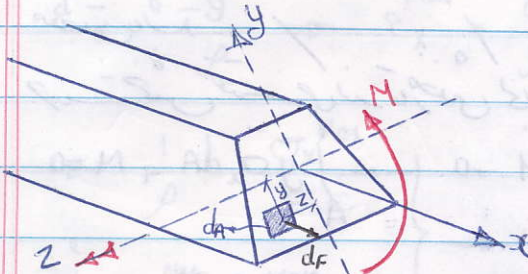 y
M
y
z
dA
dF
z
x